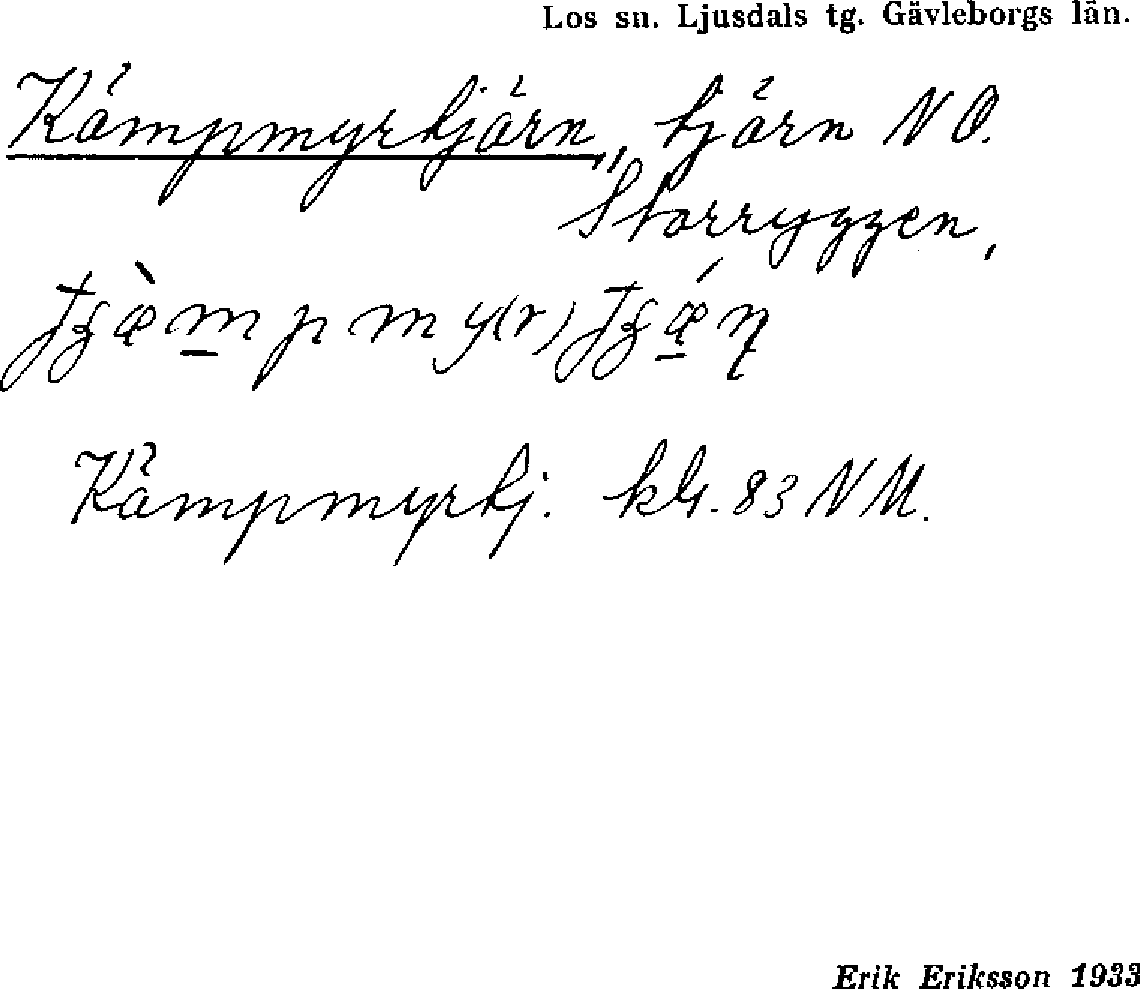 Los sn. Ljusdals tg. Gävleborgs län.
Kämpmyrtjärn, tjärn NO.
Storryggen,
Kämpmyrtj. kbl. 83 NM.
Erik Eriksson 1933